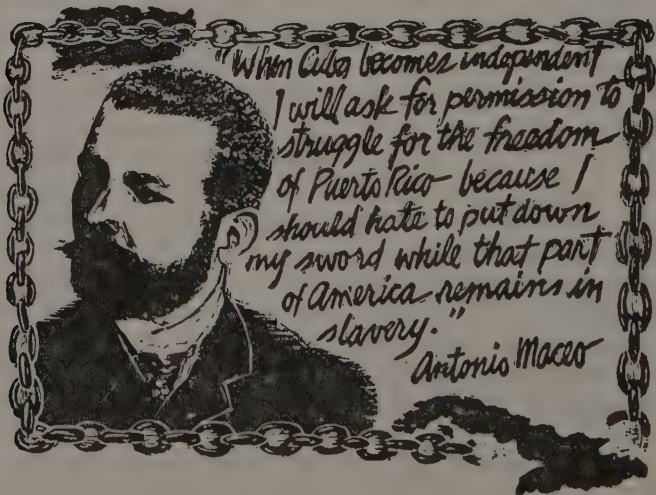 "When Cuba becomes independent
I will ask for permission to
struggle for the freedom
of Puerto Rico because I
should hate to put down
my sword while that part
of America remains in
slavery."
Antonio Maceo